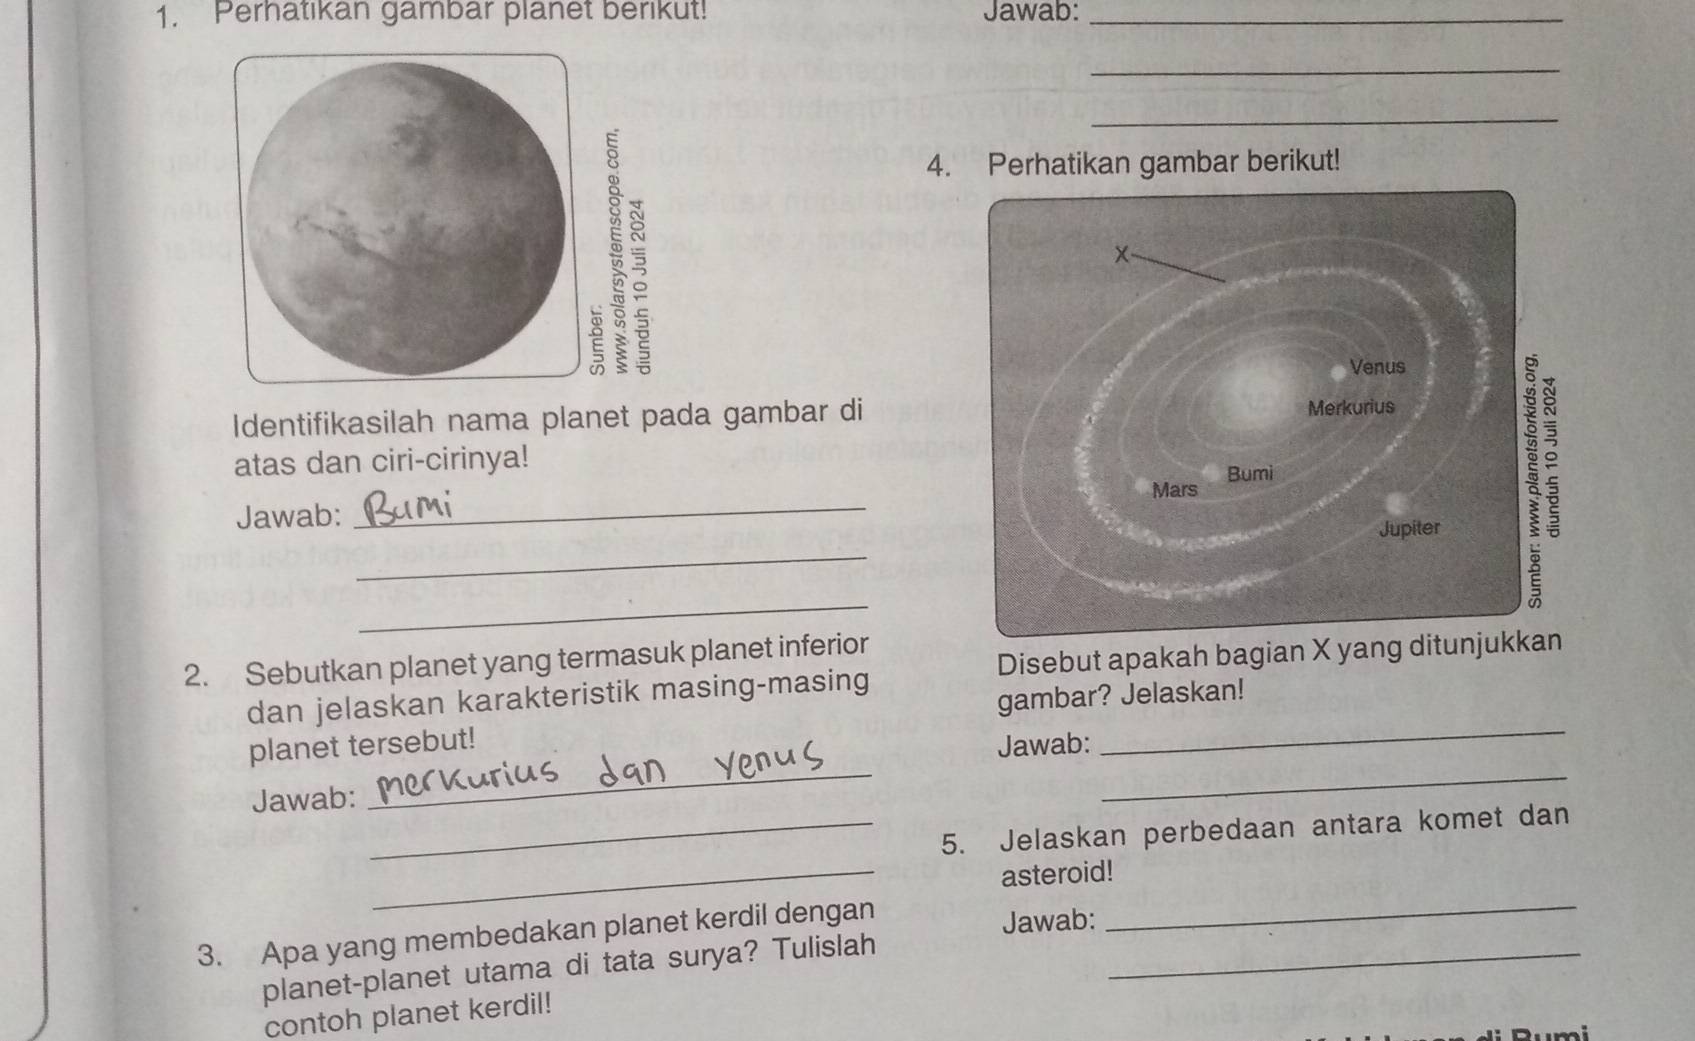 1. Perhatikan gambar planet berikut!
Sumber:
www.solarsystemscope.com,
diunduh 10 Juli 2024
Identifikasilah nama planet pada gambar di
atas dan ciri-cirinya!
Jawab: Bumi
2. Sebutkan planet yang termasuk planet inferior
dan jelaskan karakteristik masing-masing
planet tersebut!
Jawab: merkurius dan venus
3. Apa yang membedakan planet kerdil dengan
planet-planet utama di tata surya? Tulislah
contoh planet kerdil!
Jawab:
4. Perhatikan gambar berikut!
X
Venus
Merkurius
Bumi
Mars
Jupiter
Sumber: www.planetsforkids.org,
diunduh 10 Juli 2024
Disebut apakah bagian X yang ditunjukkan
gambar? Jelaskan!
Jawab:
5. Jelaskan perbedaan antara komet dan
asteroid!
Jawab:
di Bumi